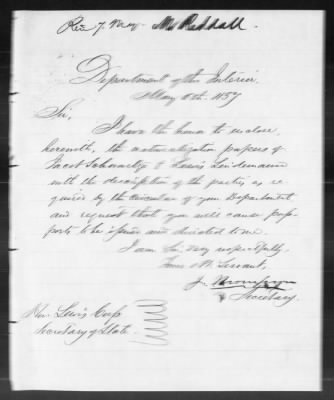 Rec 7. May Mr Reddall
Department of the Interior
May 6th. 1857
Sir,
I have the honor to enclose,
herewith, the naturalization papers of
Jacob Schwartz & Lewis Lindemann
with the description of the parties as re-
quired by the circular of your Department
and request that you will cause pass-
ports to be issued and directed to me.
I am Sir, very respectfully,
Your Ob. Servant,
J. Thompson
Secretary
Hon. Lewis Cass
Secretary of State